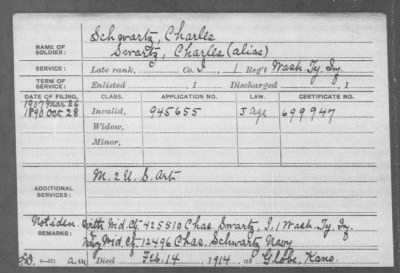 Schwartz, Charles
NAME OF SOLDIER: Swartz, Charles (alias)
SERVICE: Late rank, Co. I, 1 Reg't Wash. Ty. Inf.
TERM OF SERVICE: Enlisted , 1 Discharged , 1
DATE OF FILING. CLASS. APPLICATION NO. LAW. CERTIFICATE NO.
1907 Mar 26
1890 Oct 28 Invalid, 945655 J Age 699947
Widow,
Minor,
ADDITIONAL SERVICES: M. 2 U. S. Art
REMARKS: Not iden. with Wid. Cf- 425510 Chas. Swartz, I, 1 Wash. Ty. Inf.
Navy Wid. Cf- 12496 Chas. Schwartz Navy
a.m Died Feb. 14 1914 at Globe, Kans.